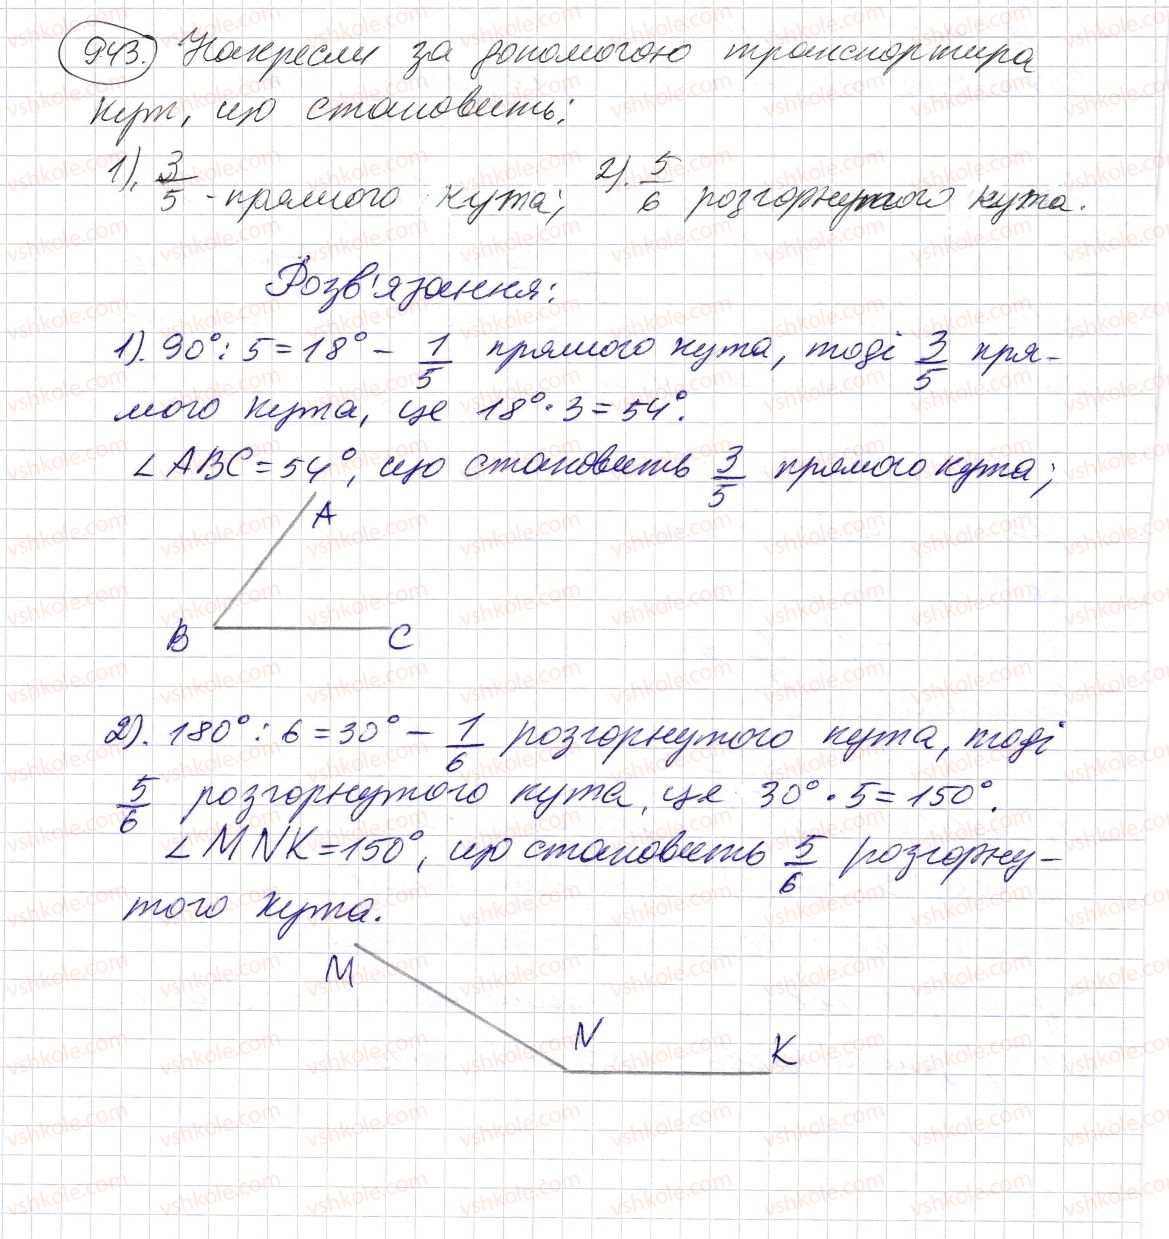 943. Накресли за допомогою транспортира
кут, що становить:
1). 3/5 - прямого кута; 2). 5/6 розгорнутого кута.
Розв'язання:
1). 90° : 5 = 18° – 1/5 прямого кута, тоді 3/5 пря-
мого кута, це 18° · 3 = 54°.
∠ABC = 54°, що становить 3/5 прямого кута;
A
B C
2). 180° : 6 = 30° – 1/6 розгорнутого кута, тоді
5/6 розгорнутого кута, це 30° · 5 = 150°.
∠MNK = 150°, що становить 5/6 розгорну-
того кута.
M
N K
vshkole.com